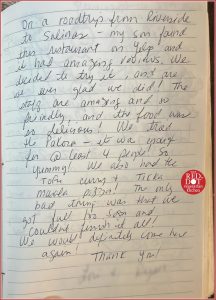 On a roadtrip from Riverside
to Salinas - my son found
this restaurant on Yelp and
it had amazing reviews. We
decided to try it, and are
we ever glad we did! The
staff are amazing and so
friendly, and the food was
so delicious! We tried
the Pakora - it was enough
for @ least 4 people! So
yummy! We also had the
Tofu curry & Tikka
Masala pizza! The only
bad thing was that we
got full too soon and
couldn't finish it all!
We would definitely come here
again! Thank you!
RED HOT
Vegetarian
Kitchen